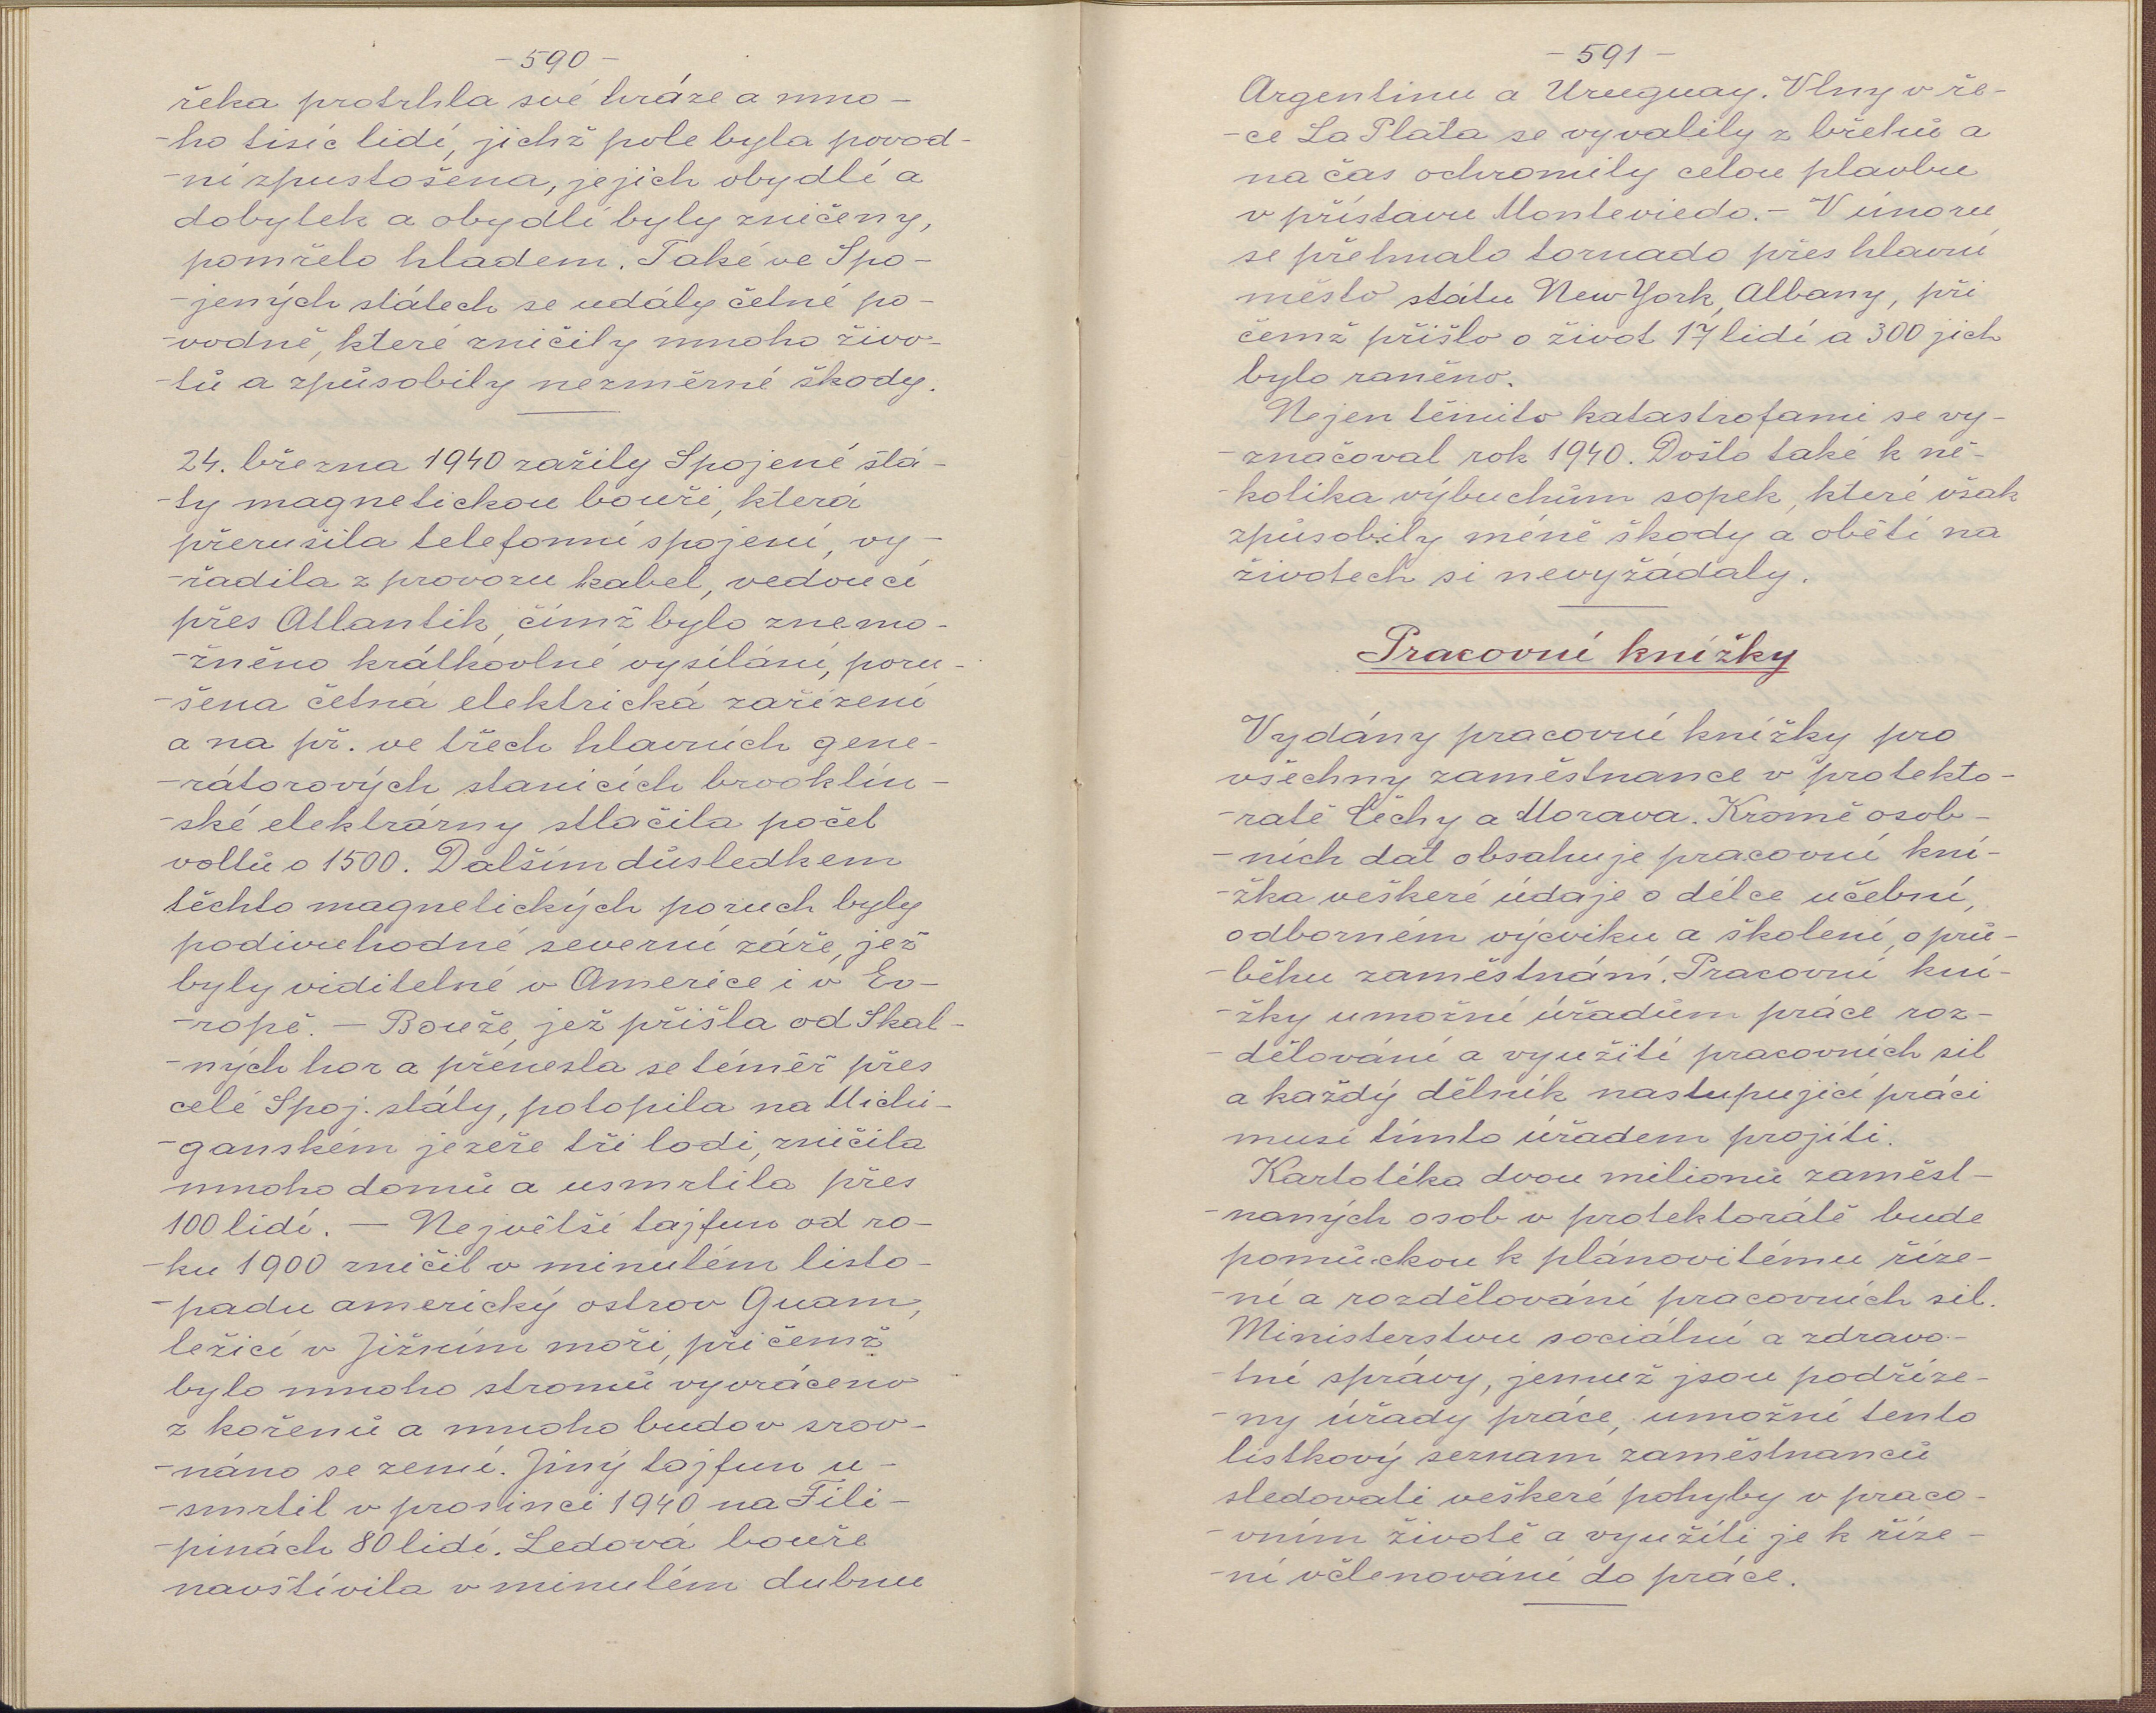 - 590 -
řeka protrhla své hráze a mno-
-ho tisíc lidí, jichž pole byla povod-
-ní zpustošena, jejich obydlí a
dobytek a obydlí byly zničeny,
pomřelo hladem. Také ve Spo-
-jených státech se udály četné po-
-vodně, které zničily mnoho živo-
-tů a způsobily nezměrné škody.
24. března 1940 zažily Spojené stá-
-ty magnetickou bouři, která
přerušila telefonní spojení, vy-
-řadila z provozu kabel, vedoucí
přes Atlantik, čímž bylo znemo-
-žněno krátkovlné vysílání, poru-
-šena četná elektrická zařízení
a na př. ve třech hlavních gene-
-rátorových stanicích brooklin-
-ské elektrárny stlačila počet
voltů o 1500. Dalším důsledkem
těchto magnetických poruch byly
podivuhodné severní záře, jež
byly viditelné v Americe i v Ev-
-ropě. - Bouře, jež přišla od Skal-
-ných hor a přenesla se téměř přes
celé Spoj. státy, potopila na Michi-
-ganském jezeře tři lodi, zničila
mnoho domů a usmrtila přes
100 lidí. - Největší tajfun od ro-
-ku 1900 zničil v minulém listo-
-padu americký ostrov Guam,
ležící v Jižním moři, při čemž
bylo mnoho stromů vyvráceno
z kořenů a mnoho budov srov-
-náno se zemí. Jiný tajfun u-
-smrtil v prosinci 1940 na Fili-
-pinách 80 lidí. Ledová bouře
navštívila v minulém dubnu
- 591 -
Argentinu a Uruguay. Vlny v ře-
-ce La Plata se vyvalily z břehů a
na čas ochromily celou plavbu
v přístavu Monteviedo. - V únoru
se přehnalo tornado přes hlavní
město státu New York, Albany, při
čemž přišlo o život 17 lidí a 300 jich
bylo raněno.
Nejen těmito katastrofami se vy-
-značoval rok 1940. Došlo také k ně-
-kolika výbuchům sopek, které však
způsobily méně škody a obětí na
životech si nevyžádaly.
Pracovní knížky
Vydány pracovní knížky pro
všechny zaměstnance v protekto-
-ratě Čechy a Morava. Kromě osob-
-ních dat obsahuje pracovní kní-
-žka veškeré údaje o délce učební,
odborném výcviku a školení, o prů-
-běhu zaměstnání. Pracovní kní-
-žky umožní úřadům práce roz-
-dělování a využití pracovních sil
a každý dělník nastupující práci
musí tímto úřadem projíti.
Kartotéka dvou milionů zaměst-
-naných osob v protektorátě bude
pomůckou k plánovitému říze-
-ní a rozdělování pracovních sil.
Ministerstvu sociální a zdravo-
-tní správy, jemuž jsou podříze-
-ny úřady práce, umožní tento
lístkový seznam zaměstnanců
sledovati veškeré pohyby v praco-
-vním životě a využíti je k říze-
-ní včlenování do práce.